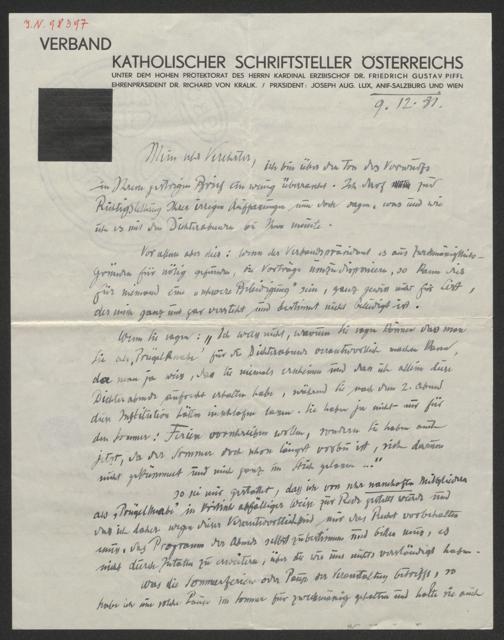 J.N. 98397
VERBAND
KATHOLISCHER SCHRIFTSTELLER ÖSTERREICHS
UNTER DEM HOHEN PROTEKTORAT DES HERRN KARDINAL ERZBISCHOF DR. FRIEDRICH GUSTAV PIFFL
EHRENPRÄSIDENT DR. RICHARD VON KRALIK. / PRÄSIDENT: JOSEPH AUG. LUX, ANIF-SALZBURG UND WIEN
9. 12. 31.
Mein sehr Verehrter, ich bin über den Ton des Vorwurfs
in Ihrem gestrigen Brief ein wenig überrascht. Ich darf zur
Richtigstellung Ihrer irrigen Auffassungen nun doch sagen, was und wie
ich es mit den Dichterabenden bei Ihnen meinte.
Vor allem aber dies: wenn der Verbandspräsident es aus Zweckmäßigkeits-
gründen für nötig, die Vorträge, so kann dies
für niemand eine "schwere Beleidigung" sein, ganz gewiss nicht für
der mich ganz und gar versteht und bestimmt nicht beleidigt ist.
Wenn Sie sagen: "Ich weiß nicht, warum Sie sagen können dass man
Sie als 'Prügelknabe' für die Dichterabende verantwortlich machen kann,
da man ja weiss, dass Sie niemals erscheinen und dass ich allein diese
Dichterabende aufrecht erhalten habe, während Sie nach dem 2. Abend
diese Institution hätten lassen. Sie haben ja nicht nur für
den Sommer: Ferien wollen, sondern Sie haben auch
jetzt, da der Sommer doch schon längst vorbei ist, sich darum
nicht gekümmert und mich ganz im Stich gelassen..."
so sei mir gestattet, dass ich von sehr namhaften Mitgliedern
als 'Prügelknabe' in abfälliger Weise zur Rede gestellt werde und
dass ich daher wegen dieser Verantwortlichkeit mir das Recht vorbehalten
muss, das Programm der Abende selbst zu bestimmen und bitten muss, es
nicht durch Zutaten zu erweitern, über die wir uns nicht verständigt haben.
Was die Sommerferien oder Pause der Veranstaltung betrifft, so
habe ich eine solche Pause im Sommer für zweckmässig gehalten und halte sie auch